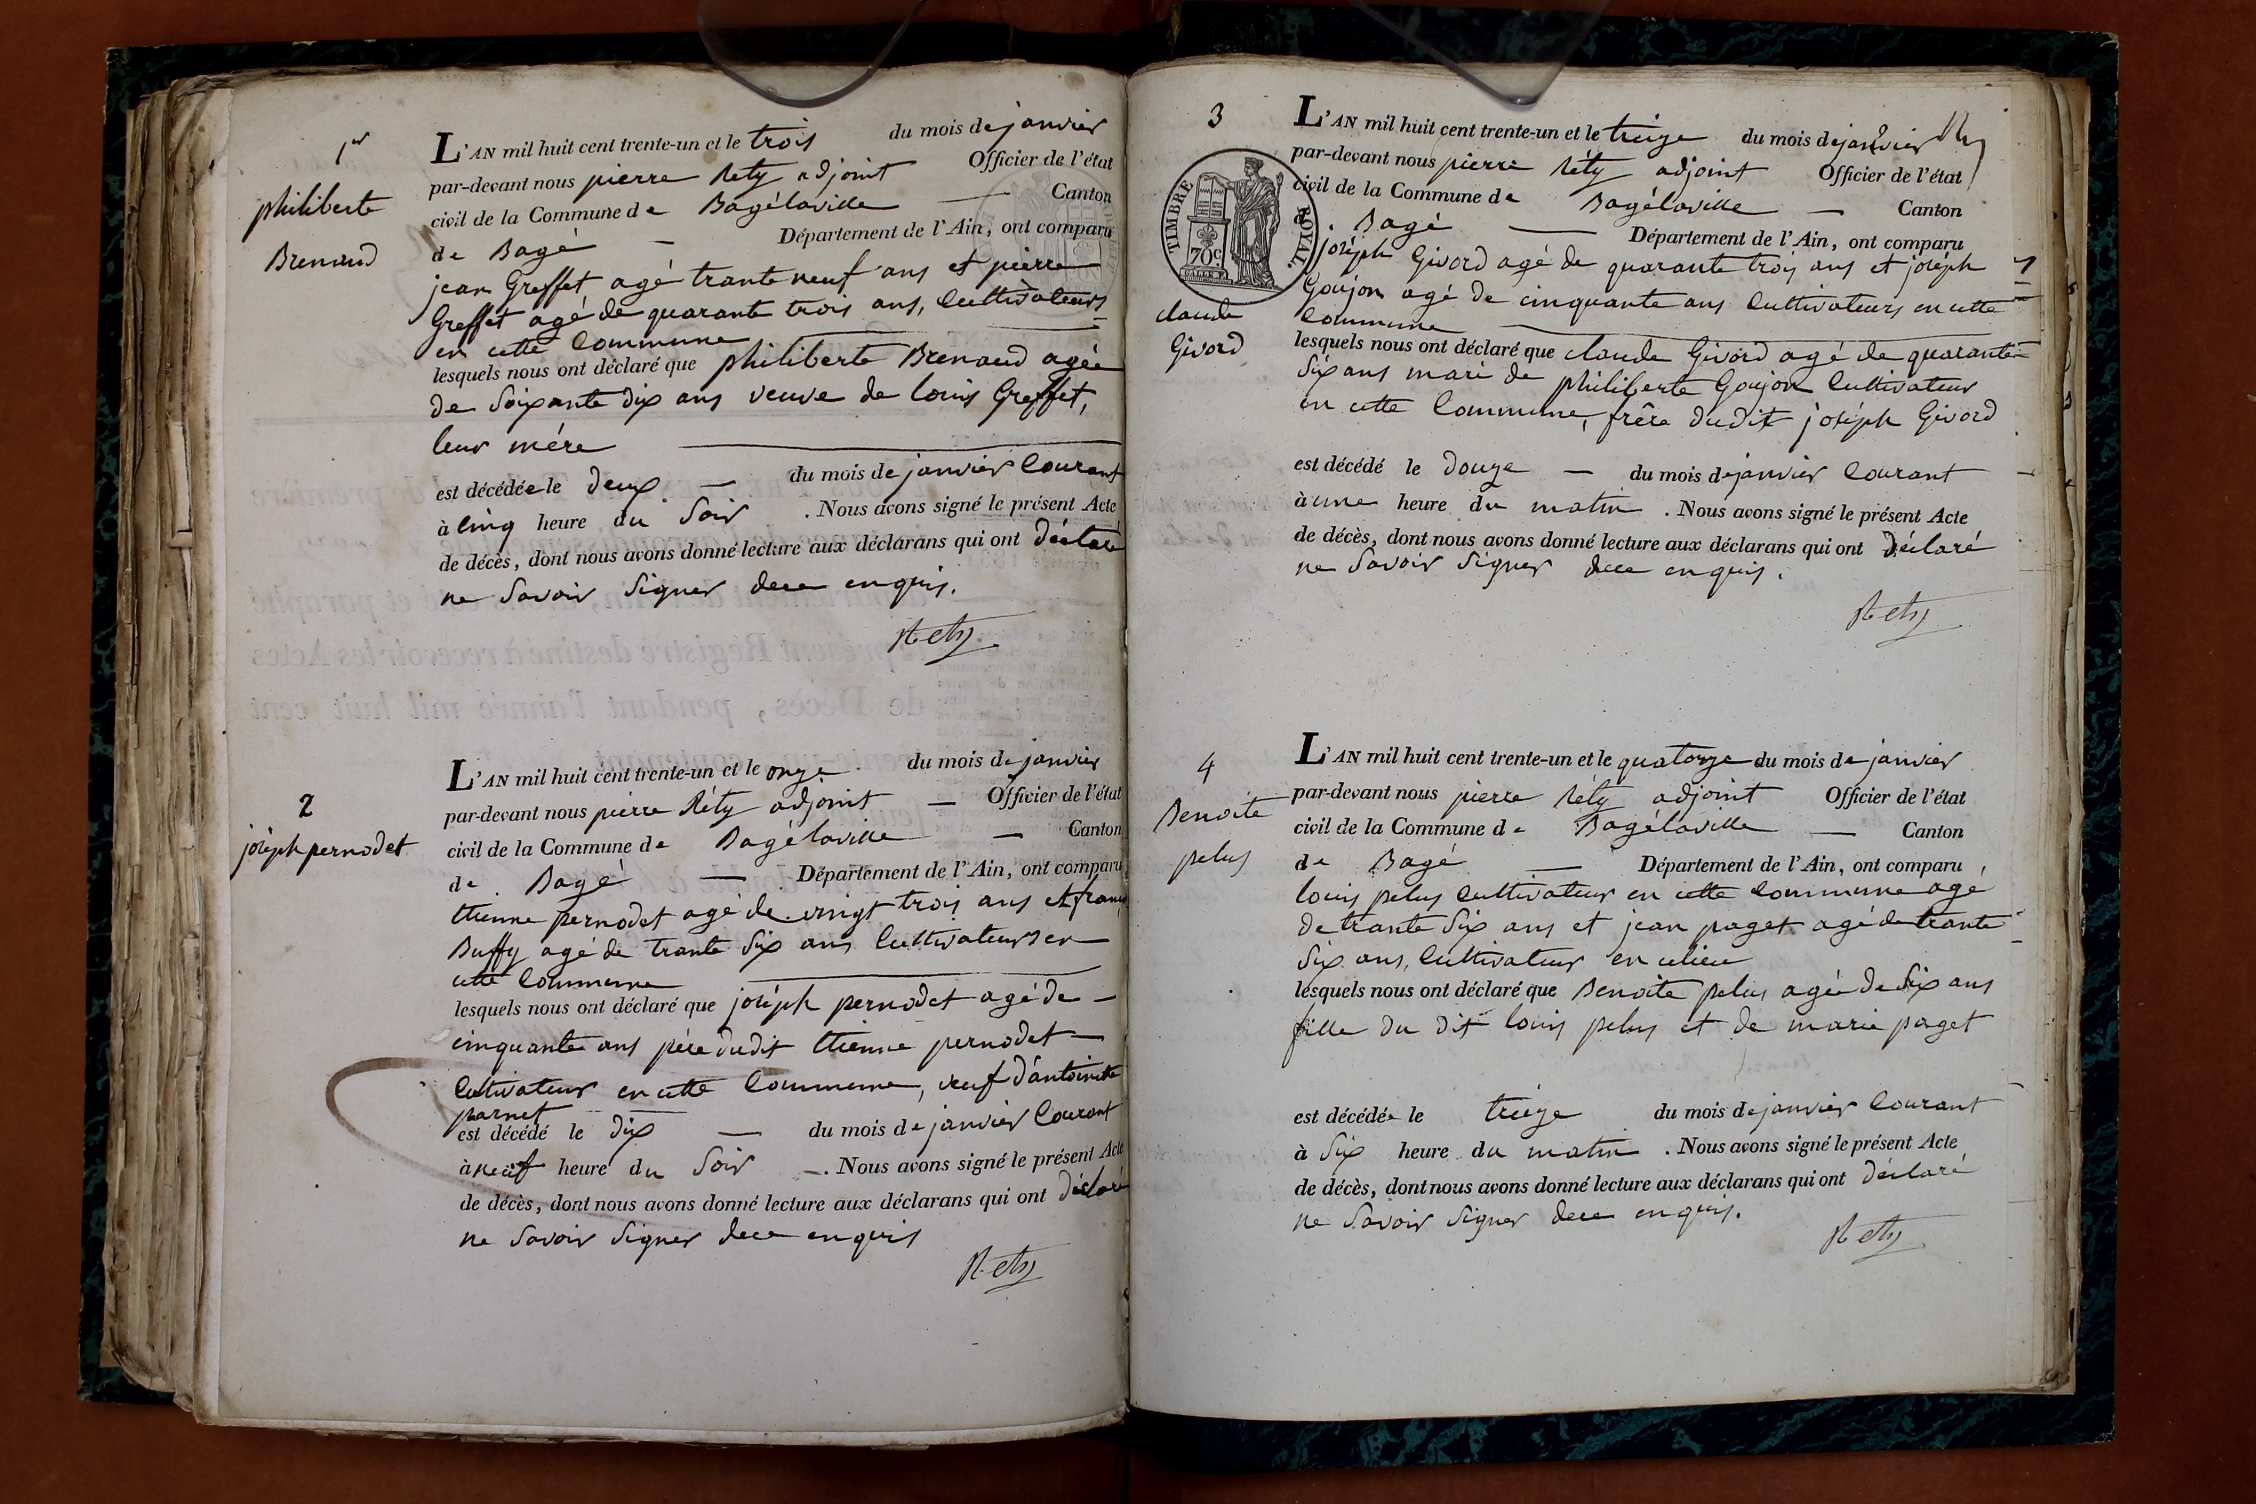 1er
philiberte
Brenaud
L'AN mil huit cent trente-un et le trois du mois de janvier
par-devant nous pierre Rety adjoint Officier de l'état
civil de la Commune de Bagélaville — Canton
de Bagé — Département de l'Ain, ont comparu
jean Greffet agé trante neuf ans et pierre
Greffet agé de quarante trois ans, Cultivateurs
en cette Commune
lesquels nous ont déclaré que philiberte Brenaud agée
de Soixante dix ans veuve de louis Greffet,
leur mére
est décédée le deux — du mois de janvier Courant
à Cinq heure du Soir . Nous avons signé le présent Acte
de décès, dont nous avons donné lecture aux déclarans qui ont déclaré
ne Savoir Signer dece enquis.
Rety
2
joséph pernodet
L'AN mil huit cent trente-un et le onze du mois de janvier
par-devant nous pierre Réty adjoint — Officier de l'état
civil de la Commune de Bagélaville — Canton
de Bagé — Département de l'Ain, ont comparu
ttienne pernodet agé de vingt trois ans et
Buffy agé de trante Six ans Cultivateurs en
cette Commune
lesquels nous ont déclaré que joséph pernodet agé de —
cinquante ans pére dudit ttienne pernodet —
Cultivateur en cette Commune, veuf d'antoinette
parnet
est décédé le dix — du mois de janvier Courant
à neuf heure du Soir —. Nous avons signé le présent Acte
de décès, dont nous avons donné lecture aux déclarans qui ont déclaré
ne Savoir Signer dece enquis
Rety
3
TIMBRE ROYAL.
70c
claude
Givord
L'AN mil huit cent trente-un et le treize du mois de janvier
par-devant nous pierre Réty adjoint Officier de l'état
civil de la Commune de Bagélaville — Canton
Bagé — Département de l'Ain, ont comparu
joséph Givord agé de quarante trois ans et joséph
Goujon agé de cinquante ans Cultivateurs en cette
Commune
lesquels nous ont déclaré que claude Givord agé de quarante
Six ans mari de philiberte Goujon Cultivateur
en cette Commune, frére dudit joséph Givord
est décédé le douze — du mois de janvier Courant
à une heure du matin . Nous avons signé le présent Acte
de décès, dont nous avons donné lecture aux déclarans qui ont déclaré
ne Savoir Signer dece enquis.
Rety
4
Benoite
pelus
L'AN mil huit cent trente-un et le quatorze du mois de janvier
par-devant nous pierre Réty adjoint Officier de l'état
civil de la Commune de Bagélaville — Canton
de Bagé — Département de l'Ain, ont comparu
louis pelus Cultivateur en cette Commune agé
de trante Six ans et jean paget agé de trante
Six ans, Cultivateur en celieu
lesquels nous ont déclaré que Benoite pelus agée de Six ans
fille du dit louis pelus et de marie paget
est décédée le treize du mois de janvier Courant
à Six heure du matin . Nous avons signé le présent Acte
de décès, dont nous avons donné lecture aux déclarans qui ont déclaré
ne Savoir Signer dece enquis.
Rety